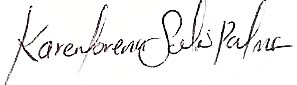 Karen lorena Solis Palma